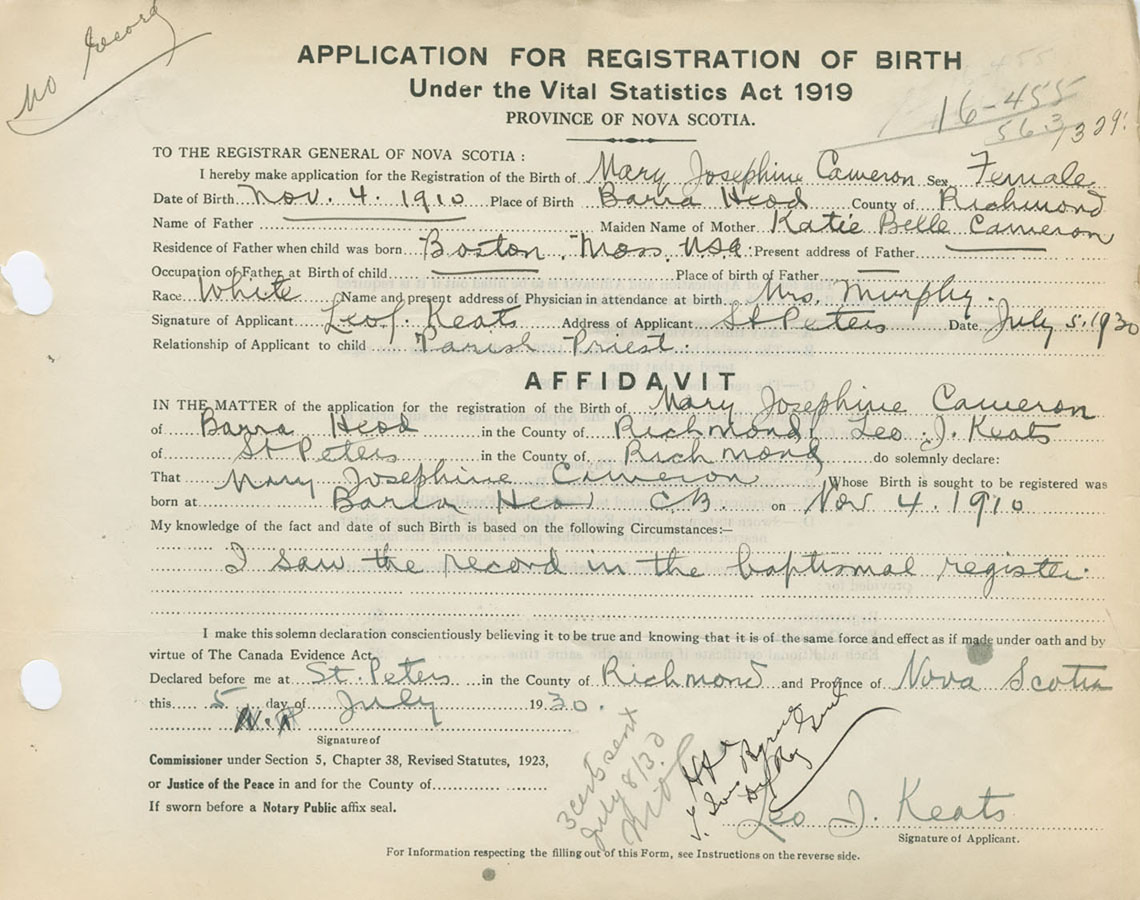 no record
APPLICATION FOR REGISTRATION OF BIRTH
Under the Vital Statistics Act 1919
16-455
PROVINCE OF NOVA SCOTIA.
TO THE REGISTRAR GENERAL OF NOVA SCOTIA :
I hereby make application for the Registration of the Birth of Mary Josephine Cameron Sex Female
Date of Birth Nov. 4. 1910 Place of Birth Barra Head County of Richmond
Name of Father Maiden Name of Mother Katie Belle Cameron
Residence of Father when child was born Boston. Mass. USA. Present address of Father
Occupation of Father at Birth of child Place of birth of Father
Race White Name and present address of Physician in attendance at birth Mrs. Murphy.
Signature of Applicant Leo J. Keats Address of Applicant St Peters Date July 5. 1930
Relationship of Applicant to child Parish Priest.
AFFIDAVIT
IN THE MATTER of the application for the registration of the Birth of Mary Josephine Cameron
of Barra Head in the County of Richmond Leo J. Keats
of St Peters in the County of Richmond do solemnly declare:
That Mary Josephine Cameron Whose Birth is sought to be registered was
born at Barra Head C.B. on Nov 4. 1910
My knowledge of the fact and date of such Birth is based on the following Circumstances:—
I saw the record in the baptismal register.
I make this solemn declaration conscientiously believing it to be true and knowing that it is of the same force and effect as if made under oath and by
virtue of The Canada Evidence Act.
Declared before me at St. Peters in the County of Richmond and Province of Nova Scotia
this 5 day of July 1930.
Signature of
Commissioner under Section 5, Chapter 38, Revised Statutes, 1923,
or Justice of the Peace in and for the County of
If sworn before a Notary Public affix seal.
3 cert sent
July 8/30
Leo J. Keats
Signature of Applicant.
For Information respecting the filling out of this Form, see Instructions on the reverse side.